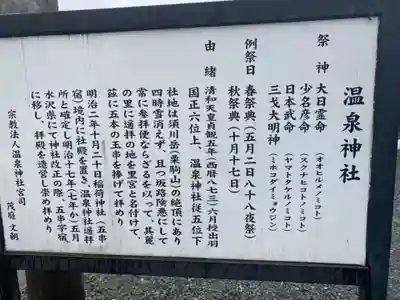 温泉神社
祭神 大日霊命 (オオヒルメノミコト)
少名彦命 (スクナヒコトノミコト)
日本武命 (ヤマトタケルノミコト)
三戈大明神 (ミホコダイミョウジン)
例祭日 春祭典 (五月二日八十八夜祭)
秋祭典 (十月十七日)
由緒 清和天皇貞観五年(西暦八七三)六月授出羽
国正六位上、温泉神社従五位下
社地は須川岳(栗駒山)の絶頂にあり
四時雪消えず、且つ坂路険悪にして
常に参拝使ならざるを以って、其麓
の里に遥拝の地を里宮と名付けて、
茲に五本の玉串を捧げて拝めり
明治二年十月二十日稲荷神社(五串
宿)境内に社殿を置き、温泉神社遥拝
所と確定し明治十七年(七年か)五月
水沢県にて神社改正の際、五串字宿
に移し、拝殿を造営し崇め拝めり
宗教法人温泉神社宮司
茂庭 文朝